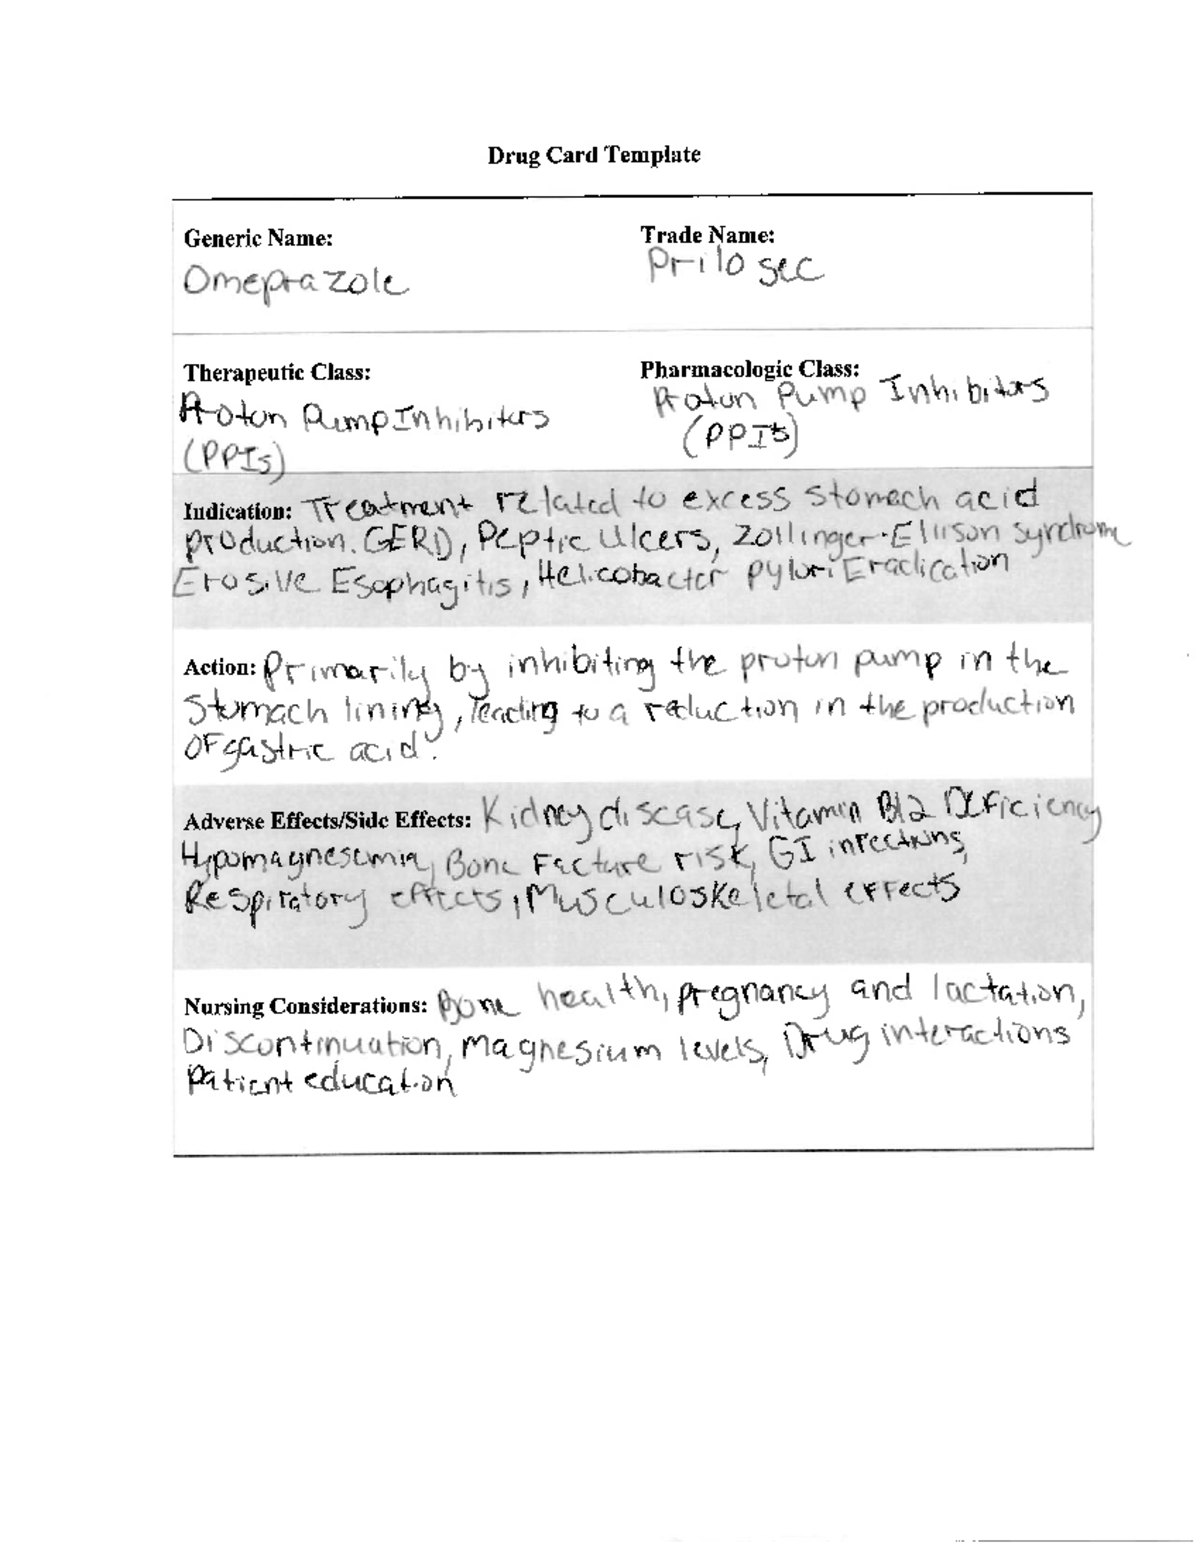 Drug Card Template
Generic Name:
Omeprazole
Trade Name:
Prilosec
Therapeutic Class:
Proton Pump Inhibitors
(PPIs)
Pharmacologic Class:
Proton Pump Inhibitors
(PPIs)
Indication: Treatment related to excess stomach acid
production. GERD, Peptic Ulcers, Zollinger-Ellison Syndrome
Erosive Esophagitis, Helicobacter pylori Eradication
Action: Primarily by inhibiting the proton pump in the
Stomach lining, leading to a reduction in the production
OF gastric acid.
Adverse Effects/Side Effects: Kidney disease, Vitamin B12 Deficiency
Hypomagnesemia, Bone Facture risk, GI infections,
Respiratory effects, Musculoskeletal effects
Nursing Considerations: Bone health, pregnancy and lactation,
Discontinuation, magnesium levels, Drug interactions
Patient education